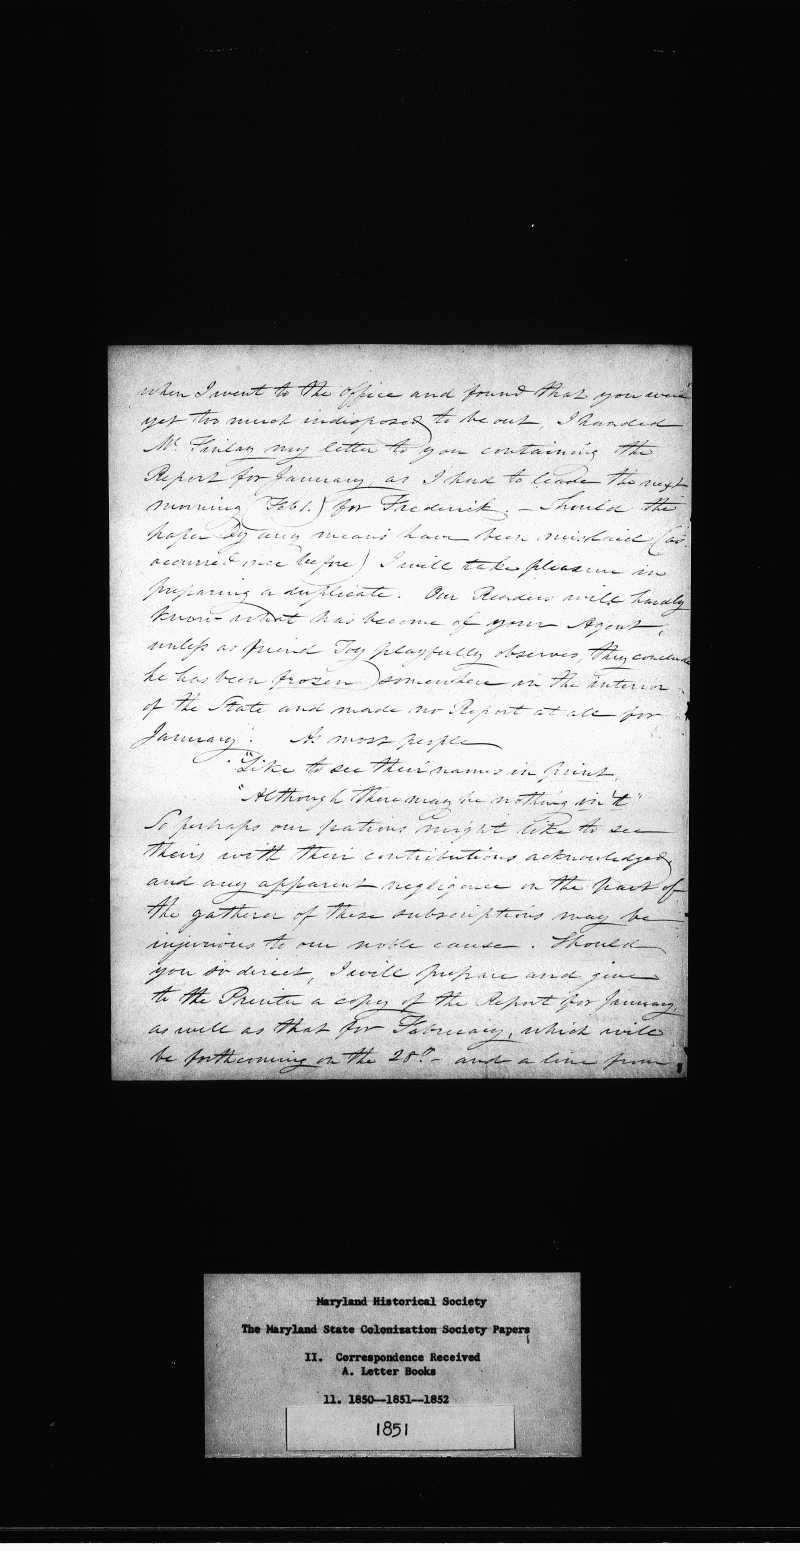 when I went to the Office and found that you were
yet too much indisposed to be out, I handed
Mr. Finlay my letter to you containing the
Report for January, as I had to leave the next
morning (Feb 1.) for Frederick. – Should the
paper by any means have been mislaid (as
occurred once before) I will take pleasure in
preparing a duplicate. Our Readers will hardly
know what has become of your Agent,
unless as friend Toy playfully observes, they conclude
he has been frozen somewhere in the interior
of the State and made no Report at all for
January. As most people
"Like to see their names in print,
"Although there may be nothing in't"
So perhaps our patrons might like to see
theirs with their contributions acknowledged,
and any apparent negligence on the part of
the gatherer of these subscriptions may be
injurious to our noble cause. Should
you so direct, I will prepare and give
to the Printer a copy of the Report for January,
as well as that for February, which will
be forthcoming on the 28th – and a line from
Maryland Historical Society
The Maryland State Colonization Society Papers
II. Correspondence Received
A. Letter Books
11. 1850--1851--1852
1851